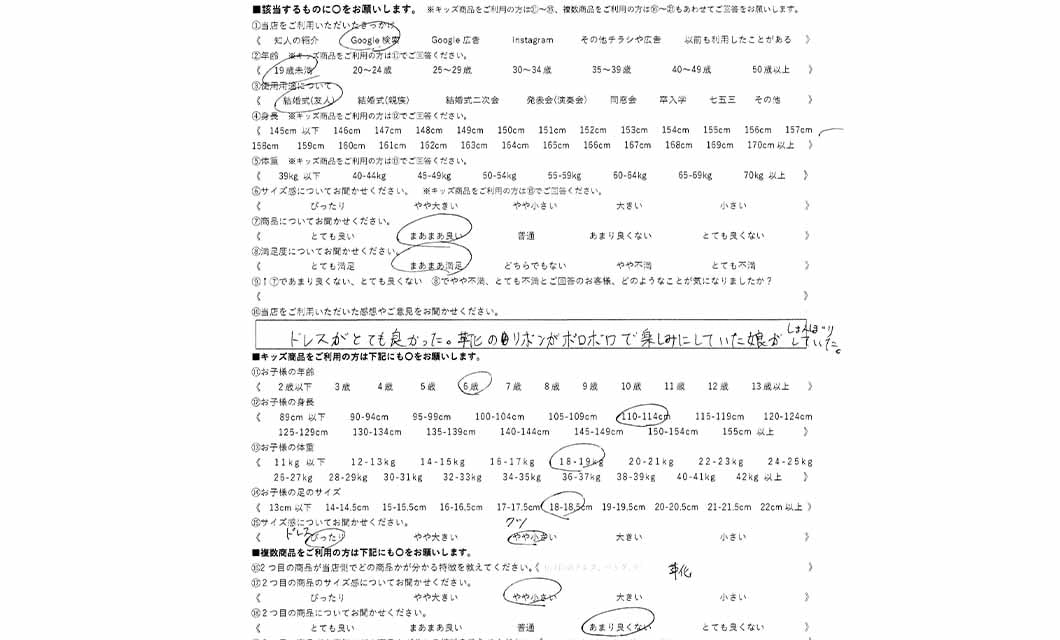 ■該当するものに〇をお願いします。 ※キッズ商品をご利用の方は⑪〜⑮、複数商品をご利用の方は⑯〜㉑もあわせてご回答をお願いします。
①当店をご利用いただいたきっかけ
《 知人の紹介 Google 検索 Google 広告 Instagram その他チラシや広告 以前も利用したことがある 》
②年齢 ※キッズ商品をご利用の方は⑪でご回答ください。
《 19歳未満 20〜24歳 25〜29歳 30〜34歳 35〜39歳 40〜49歳 50歳以上 》
③使用用途について
《 結婚式(友人) 結婚式(親族) 結婚式二次会 発表会(演奏会) 同窓会 卒入学 七五三 その他 》
④身長 ※キッズ商品をご利用の方は⑫でご回答ください。
《 145cm 以下 146cm 147cm 148cm 149cm 150cm 151cm 152cm 153cm 154cm 155cm 156cm 157cm
158cm 159cm 160cm 161cm 162cm 163cm 164cm 165cm 166cm 167cm 168cm 169cm 170cm 以上 》
⑤体重 ※キッズ商品をご利用の方は⑬でご回答ください。
《 39kg 以下 40-44kg 45-49kg 50-54kg 55-59kg 60-64kg 65-69kg 70kg 以上 》
⑥サイズ感についてお聞かせください。 ※キッズ商品をご利用の方は⑮でご回答ください。
《 ぴったり やや大きい やや小さい 大きい 小さい 》
⑦商品についてお聞かせください。
《 とても良い まあまあ良い 普通 あまり良くない とても良くない 》
⑧満足度についてお聞かせください。
《 とても満足 まあまあ満足 どちらでもない やや不満 とても不満 》
⑨↑⑦であまり良くない、とても良くない ⑧でやや不満、とても不満とご回答のお客様、どのようなことが気になりましたか？
《 》
⑩当店をご利用いただいた感想やご意見をお聞かせください。
ドレスがとても良かった。靴のリボンがボロボロで楽しみにしていた娘がしょんぼりしていた。
■キッズ商品をご利用の方は下記にも〇をお願いします。
⑪お子様の年齢
《 2歳以下 3歳 4歳 5歳 6歳 7歳 8歳 9歳 10歳 11歳 12歳 13歳以上 》
⑫お子様の身長
《 89cm 以下 90-94cm 95-99cm 100-104cm 105-109cm 110-114cm 115-119cm 120-124cm
125-129cm 130-134cm 135-139cm 140-144cm 145-149cm 150-154cm 155cm 以上 》
⑬お子様の体重
《 11kg 以下 12-13kg 14-15kg 16-17kg 18-19kg 20-21kg 22-23kg 24-25kg
26-27kg 28-29kg 30-31kg 32-33kg 34-35kg 36-37kg 38-39kg 40-41kg 42kg 以上 》
⑭お子様の足のサイズ
《 13cm 以下 14-14.5cm 15-15.5cm 16-16.5cm 17-17.5cm 18-18.5cm 19-19.5cm 20-20.5cm 21-21.5cm 22cm 以上 》
⑮サイズ感についてお聞かせください。 クツ
《 ドレス ぴったり やや大きい やや小さい 大きい 小さい 》
■複数商品をご利用の方は下記にも〇をお願いします。
⑯2つ目の商品が当店側でどの商品かが分かる特徴を教えてください。《 靴 》
⑰2つ目の商品のサイズ感についてお聞かせください。
《 ぴったり やや大きい やや小さい 大きい 小さい 》
⑱2つ目の商品についてお聞かせください。
《 とても良い まあまあ良い 普通 あまり良くない とても良くない 》